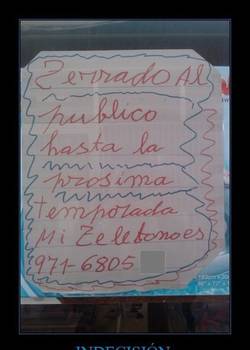 Zerrado Al
publico
hasta la
prosima
temporada
Mi Zelefonoes
971-6805
INDECISIÓN